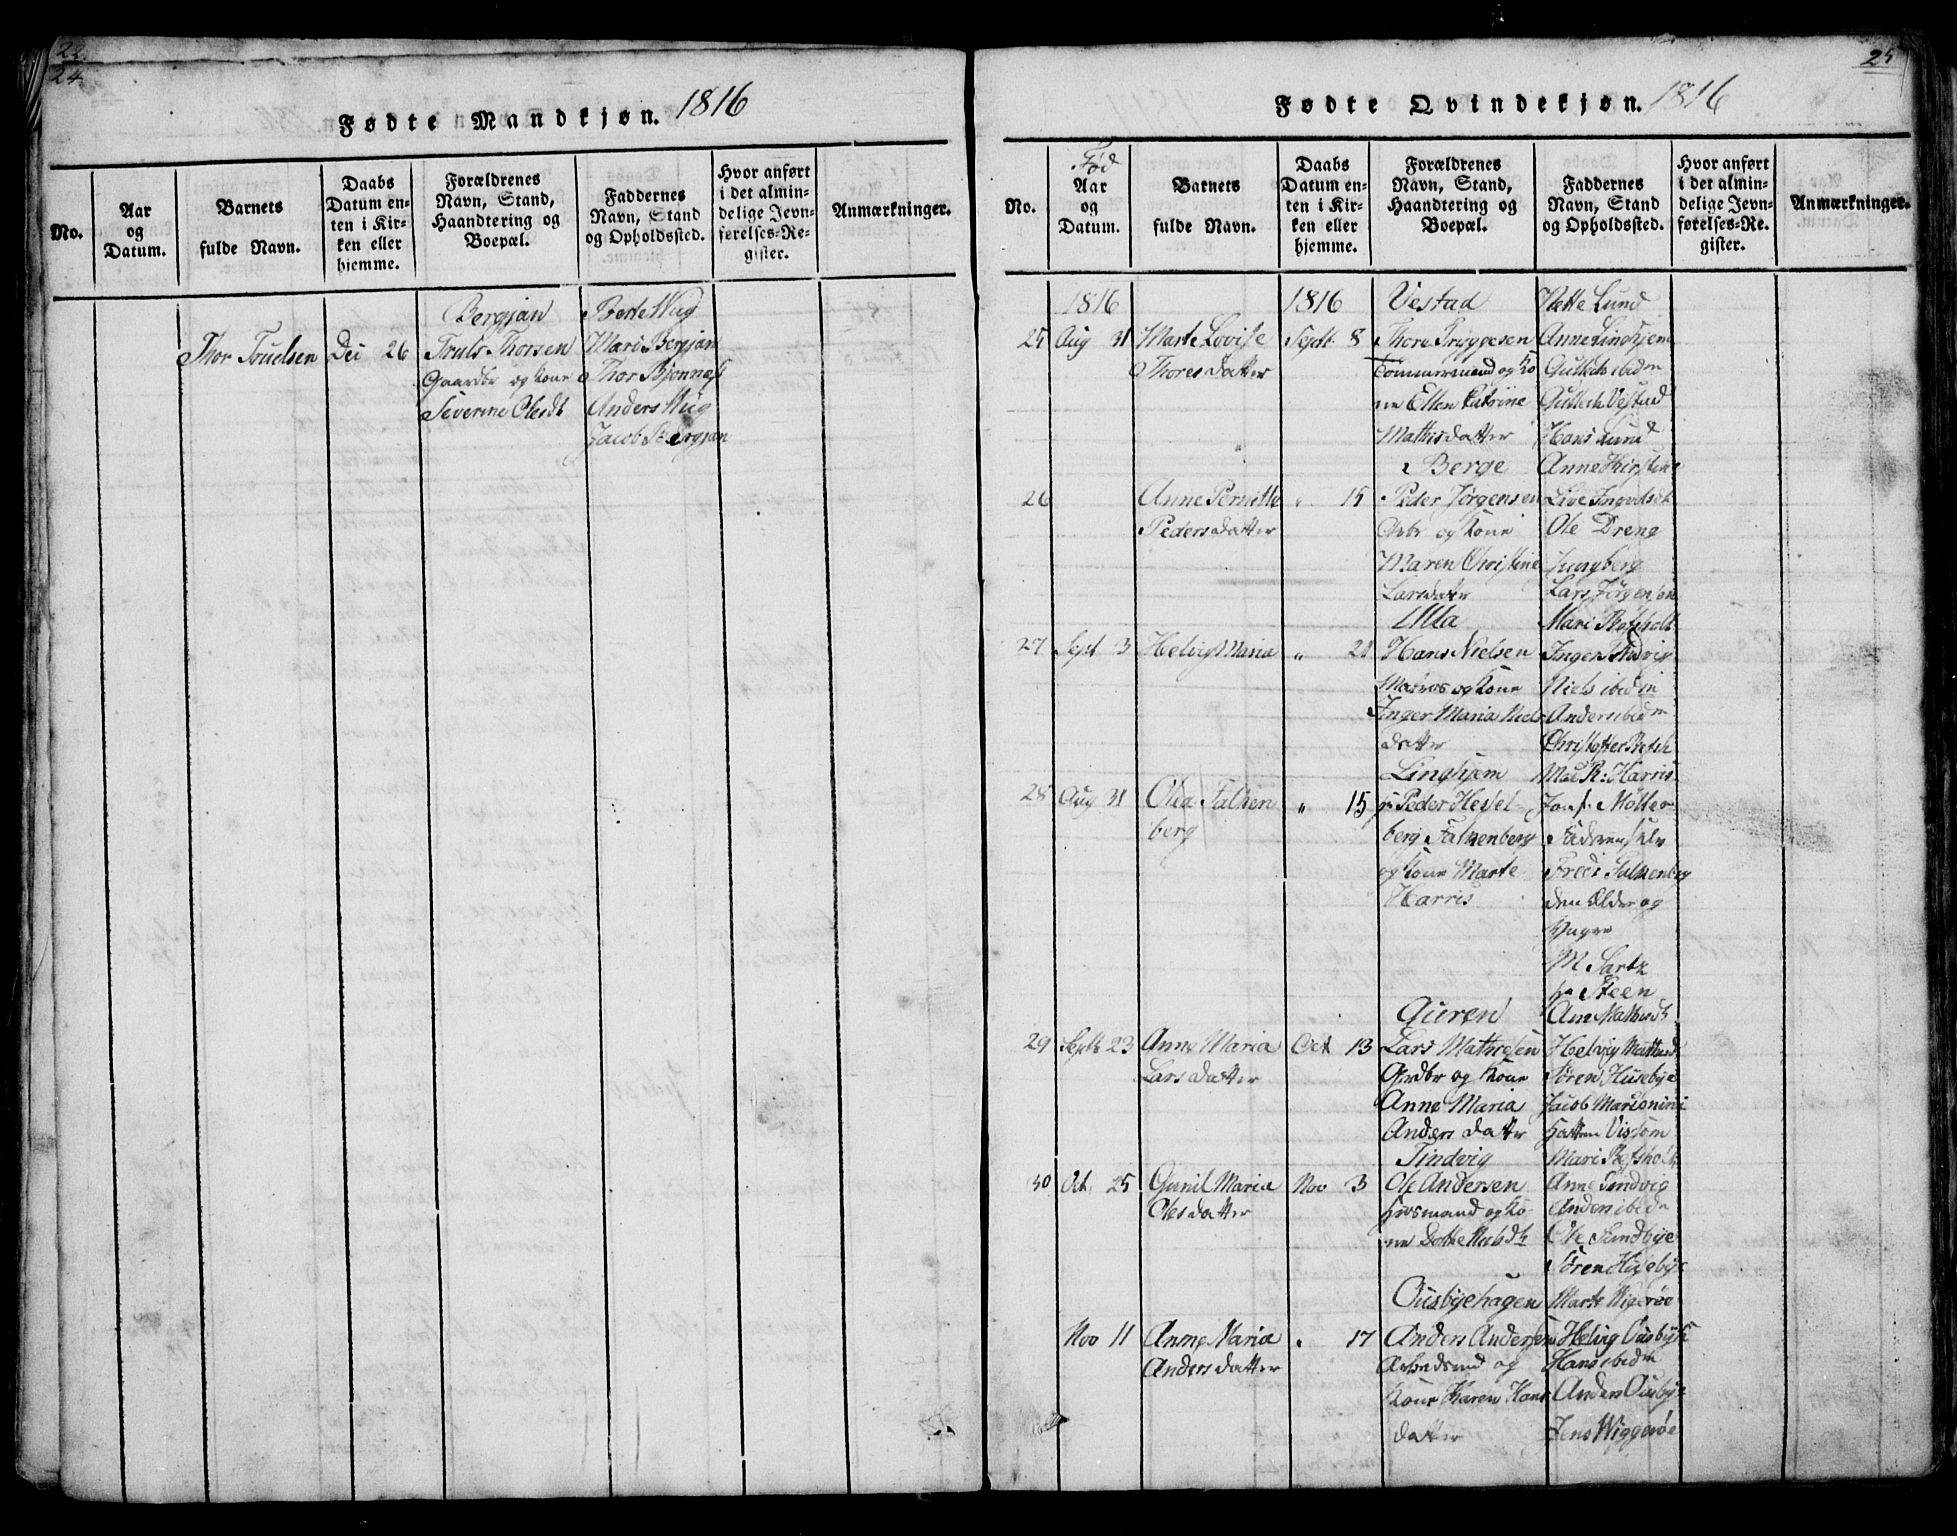 22.
24.
Fødte Mandkjøn. 1816
No.
Aar
og
Datum.
Barnets
fulde Navn.
Daabs
Datum en-
ten i Kir-
ken eller
hjemme.
Forældrenes
Navn, Stand,
Haandtering og
Boepæl.
Faddernes
Navn, Stand
og Opholdssted.
Hvor anført
i det almin-
delige Jevn-
førelses-Re-
gister.
Anmærkninger.
Bergsan
Thor Truelsen
Dec 26
Truls Thorsen
Gaardbr og Kone
Severine Olesdt
Berte Wug
Mari Bergsan
Thor Bjønnes
Anders Wug
Jacob Bergsan
25
Fødte Qvindekjøn. 1816
No.
Fød
Aar
og
Datum.
Barnets
fulde Navn.
Daabs
Datum en-
ten i Kir-
ken eller
hjemme.
Forældrenes
Navn, Stand,
Haandtering og
Boepæl.
Faddernes
Navn, Stand
og Opholdssted.
Hvor anført
i det almin-
delige Jevn-
førelses-Re-
gister.
Anmærkninger.
1816
1816
Vestad
25 Aug 31
Marte Lovise
Thores datter
Septr 8
Thore Tryggesen
Tømmermand og Ko
ne Ellen Katrine
Mathisdatter
Nette Lund
Anne Linghjem
Gullich ibidem
Gullich Vestad
Hans Lund
Berge
26
Anne Pernette
Pedersdatter
" 15
Peder Jørgensen
og Kone
Maren Christine
Larsdattr
Anne Kirstine
Live
Ole Dreng
Ljungberg
Lars Jørgensen
Ulla
27 Sept 3
Helvig Maria
"
Hans Nielsen
Matros og Kone
Inger Maria Niels
dattr
Mari
Inger
Niels ibidem
Anders ibidm
Christoffer
Linghjem
28 Aug 31
Olea Falken
berg
" 15
Peder Hessel
berg Falkenberg
og Kone Marte
Harris
Mad R: Harris
Møller
Faderen selv
Fredr Falkenberg
den Ældre og
Yngre
M Sartz
Hr Steen
Guren
29 Septr 23
Anne Maria
Lars datter
Oct 13
Lars Mathiesen
Grdbr og Kone
Anne Maria
Anders datter
Ane Mathisdt
Helvig Mathisdt
Søren Husebye
Jacob
Vissom
Tindvig
30 Oct 25
Gunil Maria
Olesdatter
Nov 3
Ole Andersen
Huusmand og Ko
ne
Mari Refsholt
Anne Tindvig
Anders ibidm
Ole Sundbye
Søren Husebye
Ousbyehagen
Nov 11
Anne Maria
Andersdatter
" 17
Anders Andersen
Arbeidsmd og
Kone Karen Hans
datter
Marte Wigerøe
Helvig Ousbye
Hans ibidm
Anders Ousbye
Jens Wiggerøe